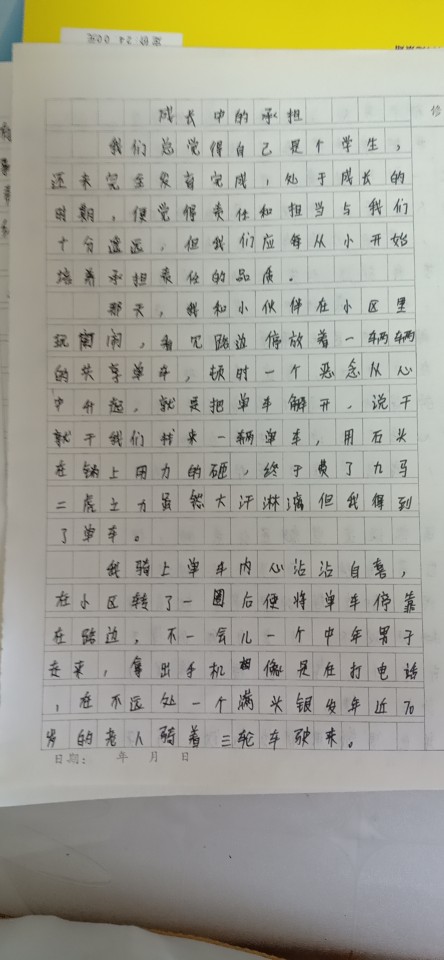 成长中的承担
我们总觉得自己是个学生，
还未完全发育完成，处于成长的
时期，便觉得责任和担当与我们
十分遥远，但我们应每从小开始
培养承担责任的品质。
那天，我和小伙伴在小区里
玩闹，看见路边停放着一辆辆
的共享单车，顿时一个恶念从心
中升起，就是把单车解开，说干
就干我们找来一辆单车，用石头
在锁上用力的砸，终于费了九马
二虎之力虽然大汗淋漓但我得到
了单车。
我骑上单车内心沾沾自喜，
在小区转了一圈后便将单车停靠
在路边，不一会儿一个中年男子
走来，拿出手机像是在打电话
，在不远处一个满头银发年近70
岁的老人骑着三轮车驶来。
日期： 年 月 日